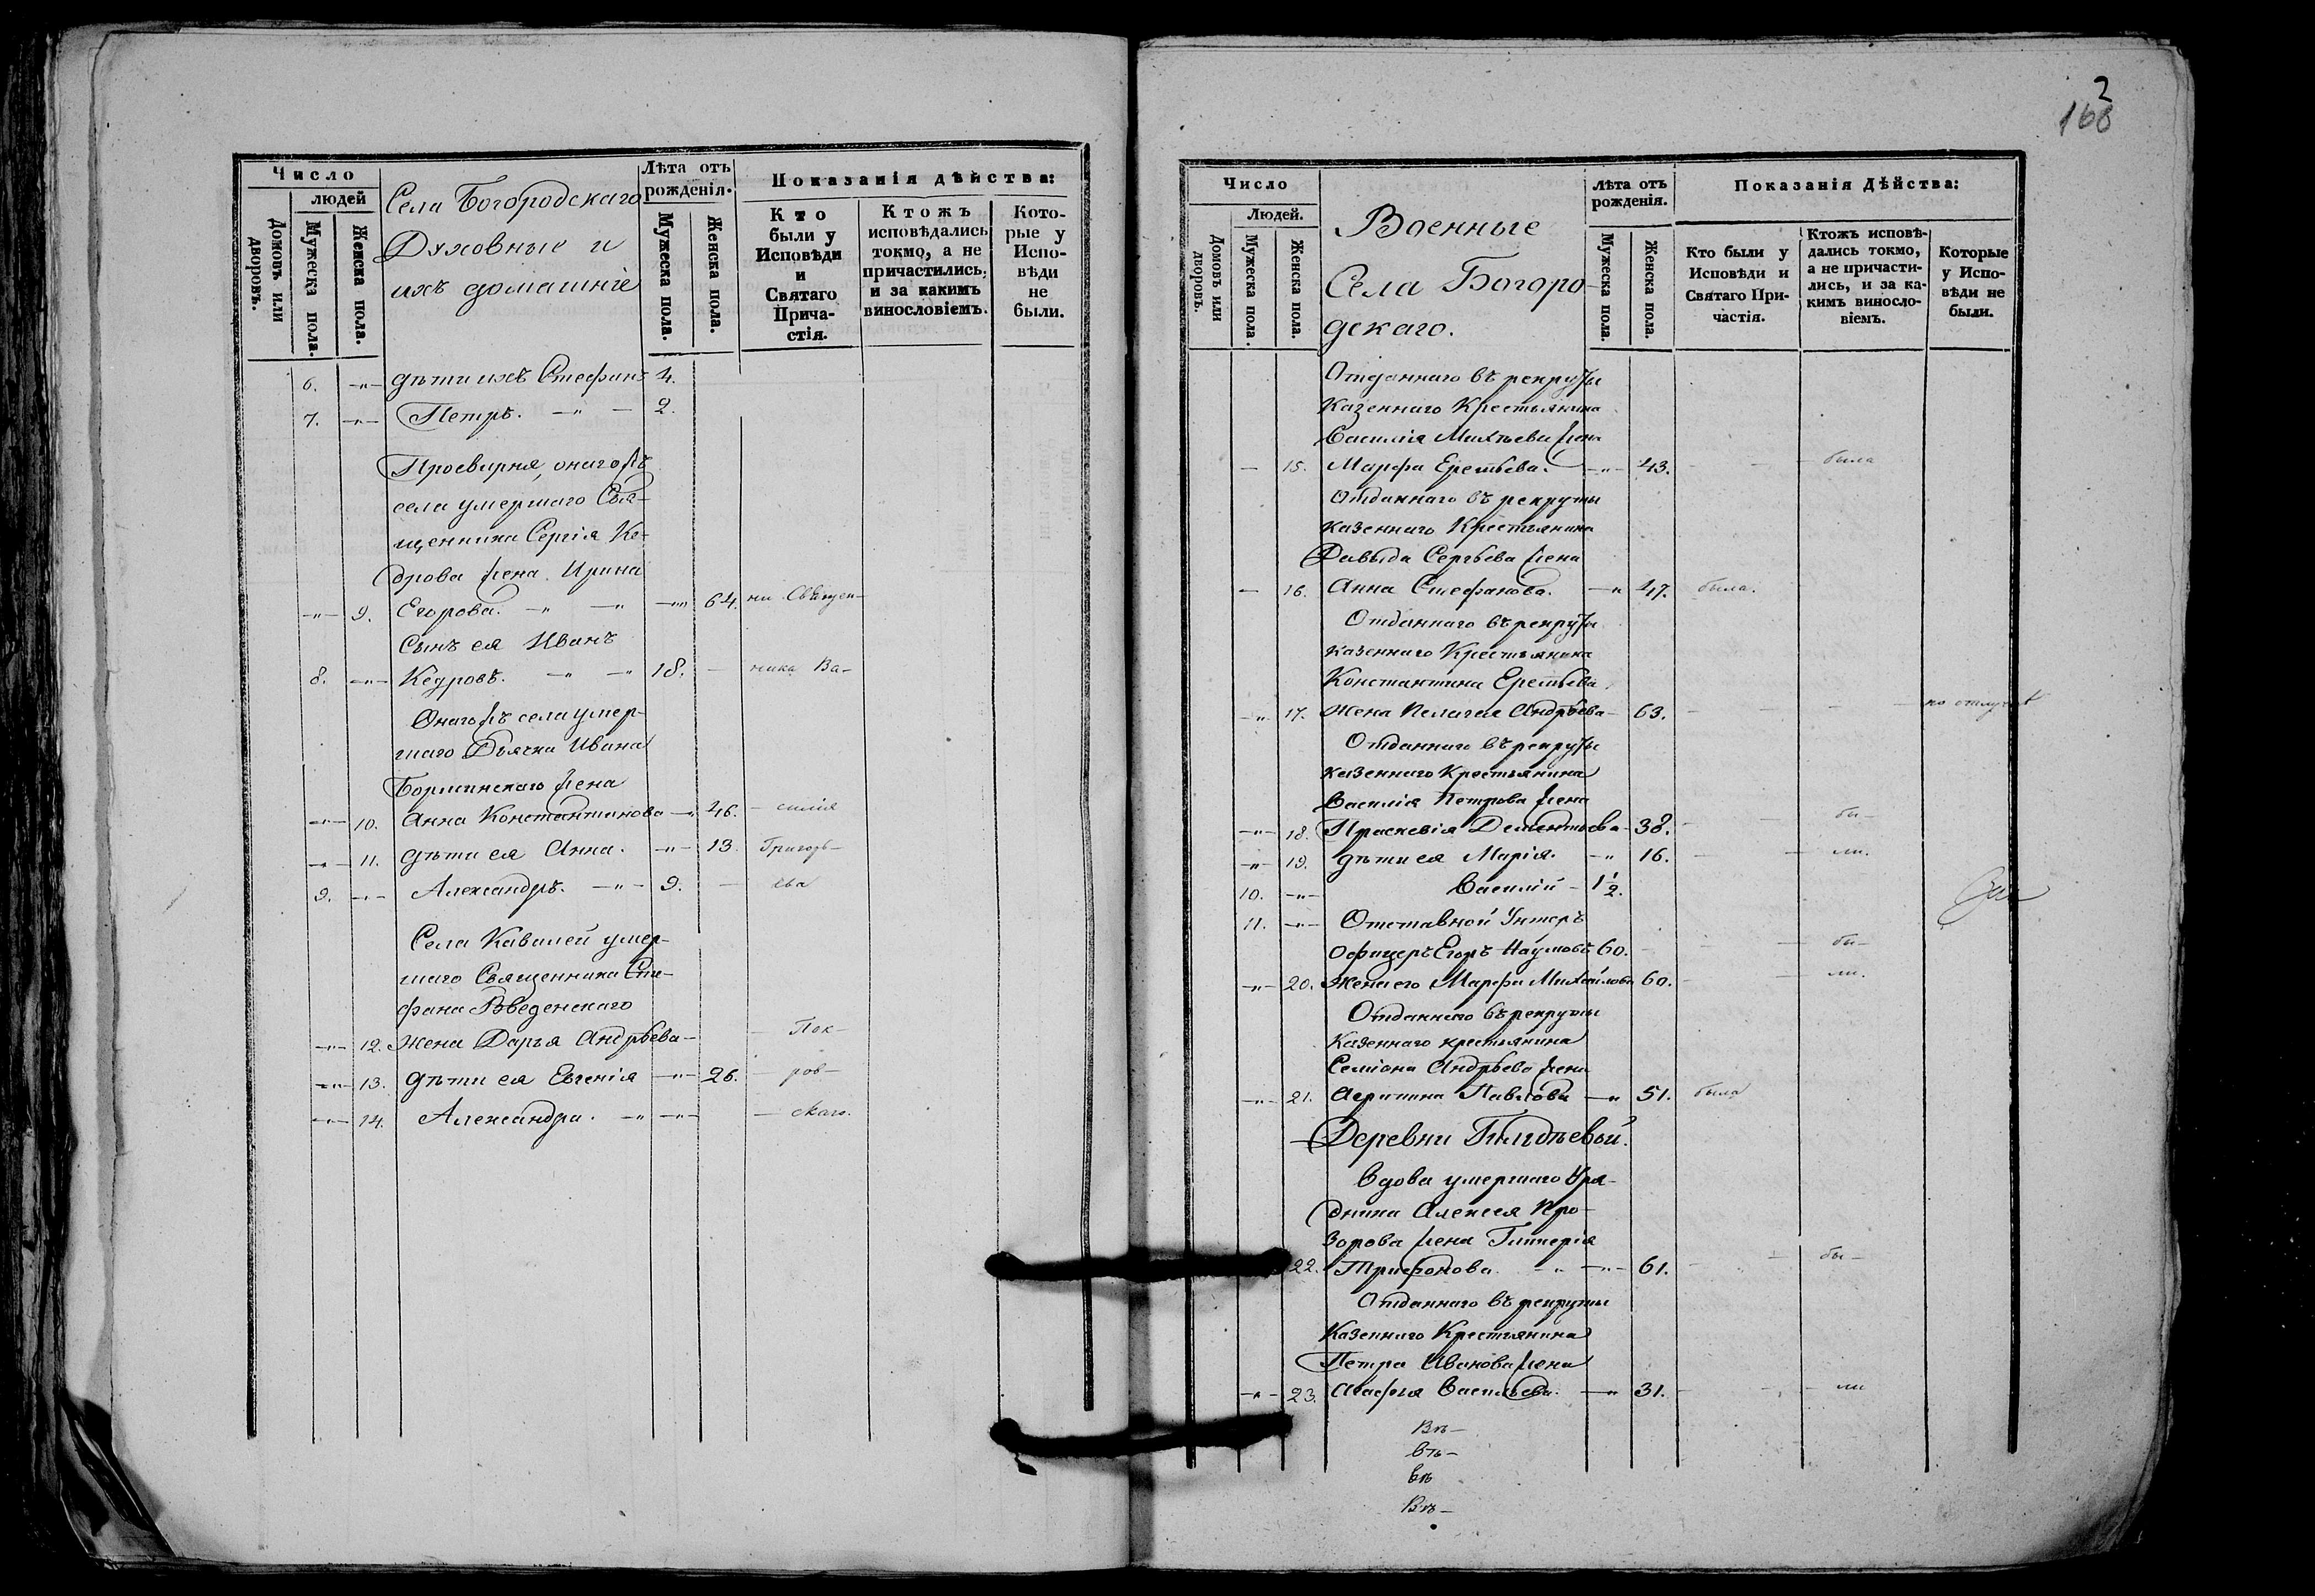 Число
людей
Домовъ или дворовъ.
Мужеска пола.
Женска пола.
Села Богородскаго
Духовные и
ихъ домашніе
Лѣта отъ рожденія.
Мужеска пола.
Женска пола.
Показанія дѣйства:
Кто были у Исповѣди и Святаго Причастія.
Ктожъ исповѣдались токмо, а не причастились, и за какимъ винословіемъ.
Которые у Исповѣди не были.
6. -"- дѣти ихъ Стефанъ 4.
7. -"- Петръ. -"- 2.
Просвирня, онагожъ
села умершаго Свя-
щенника Сергія Ке-
дрова жена Ирина
-"- 9. Егорова. -"- -"- 64. Священ-
Сынъ ея Иванъ
8. -"- Кедровъ. -"- -"- 18. - ника Ва-
Онагожъ села умер-
шаго Дьячка Ивана
жена
-"- 10. Анна Константинова -"- 46. - силія
-"- 11. дѣти ея Анна. -"- 13. Григорь-
9. -"- Александръ. -"- 9. - ева
Села умер-
шаго Священника Сте-
фана Введенскаго
-"- 12. Жена Дарья Андрѣева - - Пок-
-"- 13. дѣти ея Евгенія -"- 26. - ров-
-"- 14. Александра. -"- -"- - скаго.
2
168
Число
Людей.
Домовъ или дворовъ.
Мужеска пола.
Женска пола.
Военные
Села Богоро-
дскаго.
Лѣта отъ рожденія.
Мужеска пола.
Женска пола.
Показанія Дѣйства:
Кто были у Исповѣди и Святаго Причастія.
Ктожъ исповѣдались токмо, а не причастились, и за какимъ винословіемъ.
Которые у Исповѣди не были.
Отданнаго въ рекруты
Казеннаго Крестьянина
Василія Михѣева жена
- 15. Марфа -"- 43. - - была
Отданнаго въ рекруты
казеннаго Крестьянина
Давыда Сергѣева жена
- 16. Анна Стефанова. -"- 47. была.
Отданнаго въ рекруты
казеннаго Крестьянина
Константина
-"- 17. Жена Пелагея Андрѣева - 63. - - -
Отданнаго въ рекруты
казеннаго Крестьянина
Василія Петрова жена
-"- 18. Праскевія Дементьева - 38. - - бы-
-"- 19. дѣти ея Марія. -"- 16. - - ли.
10. -"- Василій - 1 1/2.
11. -"- Отставной Унтеръ
Офицеръ Егоръ Наумовъ 60. - - бы-
-"- 20. Жена его Марфа Михайлова 60. - - ли.
Отданнаго въ рекруты
Казеннаго крестьянина
Семіона Андрѣева жена
-"- 21. Агрипина Павлова -"- 51. была
Деревни
Вдова умершаго Уря-
дника Алексея Про-
зорова жена Гликерія
22. Трифонова. -"- -"- 61. - - бы-
Отданнаго въ рекруты
Казеннаго Крестьянина
Петра Иванова жена
-"- 23. Агафья Васильева. -"- 31. - - ли